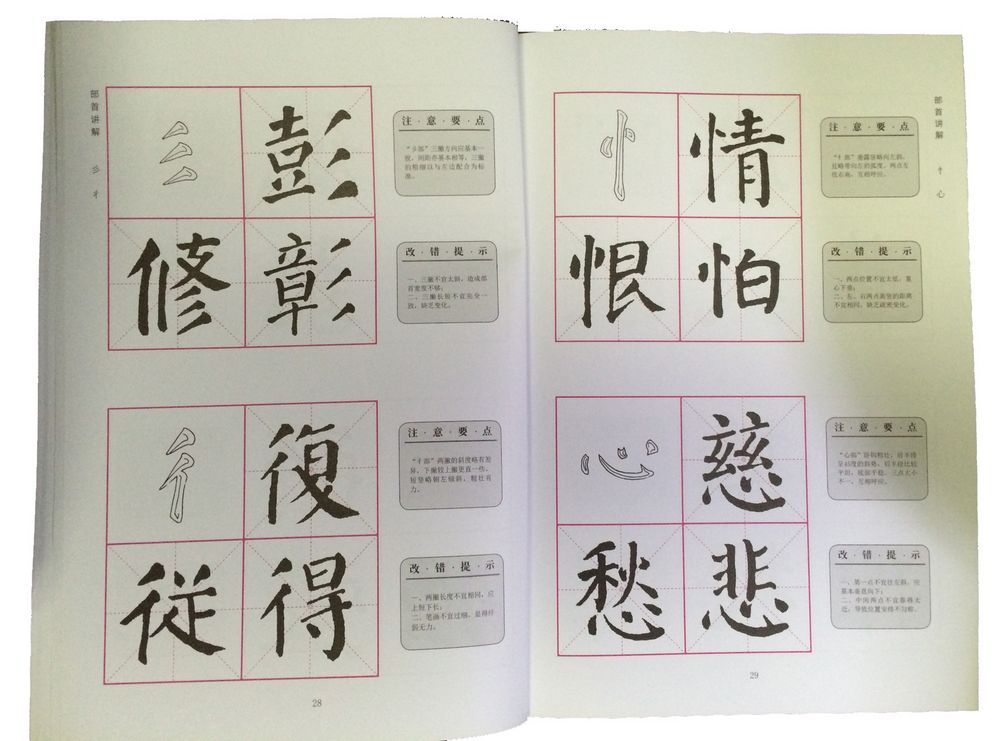 部首讲解
彡 彳
彡
彭
修
彰
注·意·要·点
“彡部”三撇方向应基本一
致，间距亦基本相等，三撇
的粗细以与左边配合为标
准。
改·错·提·示
一、三撇不宜太斜，造成部
首宽度不够；
二、三撇长短不宜完全一
致，缺乏变化。
彳
復
従
得
注·意·要·点
“彳部”两撇的斜度略有差
异，下撇较上撇更直一些，
短竖略朝左倾斜，粗壮有
力。
改·错·提·示
一、两撇长度不宜相同，应
上短下长；
二、笔画不宜过细，显得纤
弱无力。
28
部首讲解
忄 心
忄
情
恨
怕
注·意·要·点
“忄部”
且略带向左的弧度。两点左
低右高，互相呼应。
改·错·提·示
一、两点位置不宜太低，重
心下垂；
二、左、右两点离竖的距离
不宜相同，缺乏疏密变化。
心
慈
愁
悲
注·意·要·点
“心部”卧钩粗壮，前半段
呈45度的斜势，后半段比较
平坦，底部平稳。三点大小
不一，互相呼应。
改·错·提·示
一、第一点不宜往左斜，应
基本垂直向下；
二、中间两点不宜靠得太
近，导致位置安排不匀称。
29